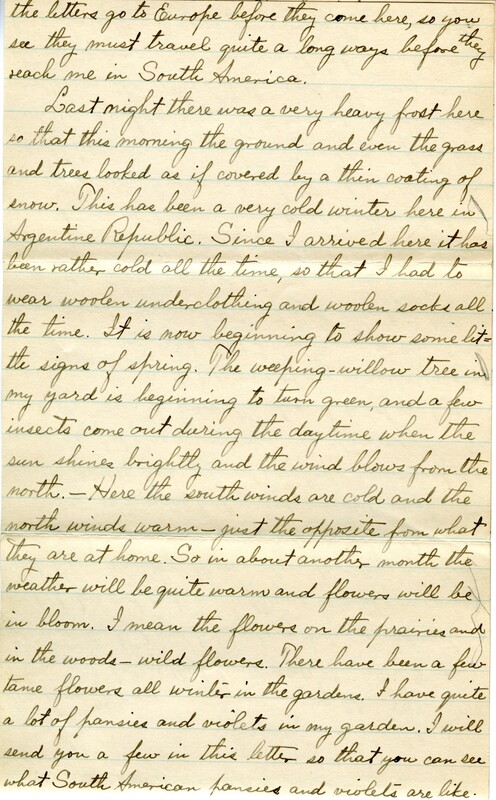 the letters go to Europe before they come here, so you
see they must travel quite a long ways before they
reach me in South America.
Last night there was a very heavy frost here
so that this morning the ground and even the grass
and trees looked as if covered by a thin coating of
snow. This has been a very cold winter here in
Argentine Republic. Since I arrived here it has
been rather cold all the time, so that I had to
wear woolen underclothing and woolen socks all
the time. It is now beginning to show some lit=
tle signs of spring. The weeping-willow tree in
my yard is beginning to turn green, and a few
insects come out during the daytime when the
sun shines brightly and the wind blows from the
north. — Here the south winds are cold and the
north winds warm — just the opposite fom what
they are at home. So in about another month the
weather will be quite warm and flowers will be
in bloom. I mean the flowers on the prairies and
in the woods — wild flowers. There have been a few
tame flowers all winter in the gardens. I have quite
a lot of pansies and violets in my garden. I will
send you a few in this letter so that you can see
what South American pansies and violets are like.